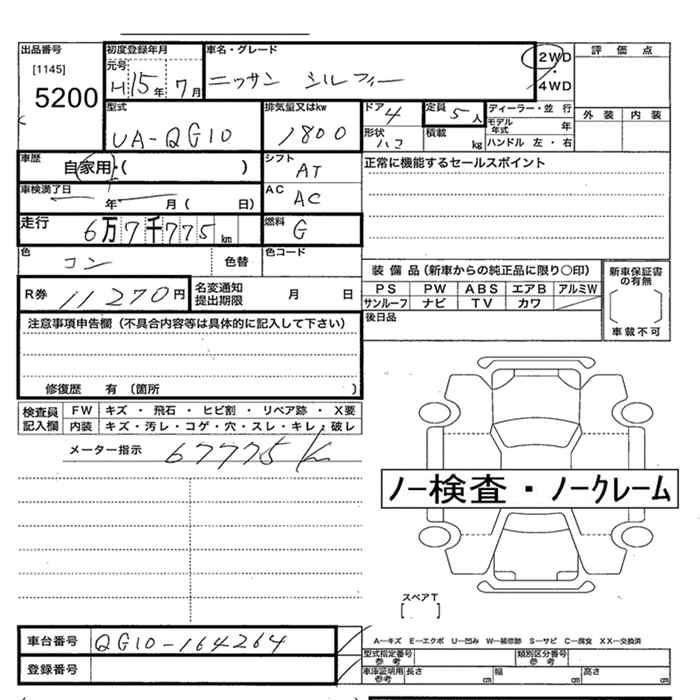 出品番号 初度登録年月 車名・グレード 2WD 評 価 点
[1145] 元号
5200 H15年 7月 ニッサン シルフィー ・ 4WD
型式 排気量又はkw ドア 定員 ディーラー・並 行 外 装 内 装
UA-QG10 1800 4 5人 モデル年式 年
形状 積載 kg ハンドル 左・右
ハコ
車歴 自家用・( ) シフト AT 正常に機能するセールスポイント
車検満了日 年 月 ( 日) AC AC
走行 6万7千775km 燃料 G
色 コン 色替 色コード
装 備 品 (新車からの純正品に限り○印) 新車保証書の有無
R券 11270円 名変通知提出期限 月 日 PS PW ABS エアB アルミW
サンルーフ ナビ TV カワ
注意事項申告欄 (不具合内容等は具体的に記入して下さい) 後日品 車載不可
修復歴 有 (箇所 )
検査員記入欄 FW キズ ・ 飛石 ・ ヒビ割 ・ リペア跡 ・ X要
内装 キズ・汚レ・コゲ・穴・スレ・キレ・破レ
メーター指示 67775 km
ノー検査・ノークレーム
スペアT
[ ]
車台番号 QG10-164264 A−キズ E−エクボ U−凹み W−補修跡 S−サビ C−腐食 XX−交換済
型式指定番号参考 類別区分番号参考
登録番号 車庫証明用参考 長さ cm 幅 cm 高さ cm